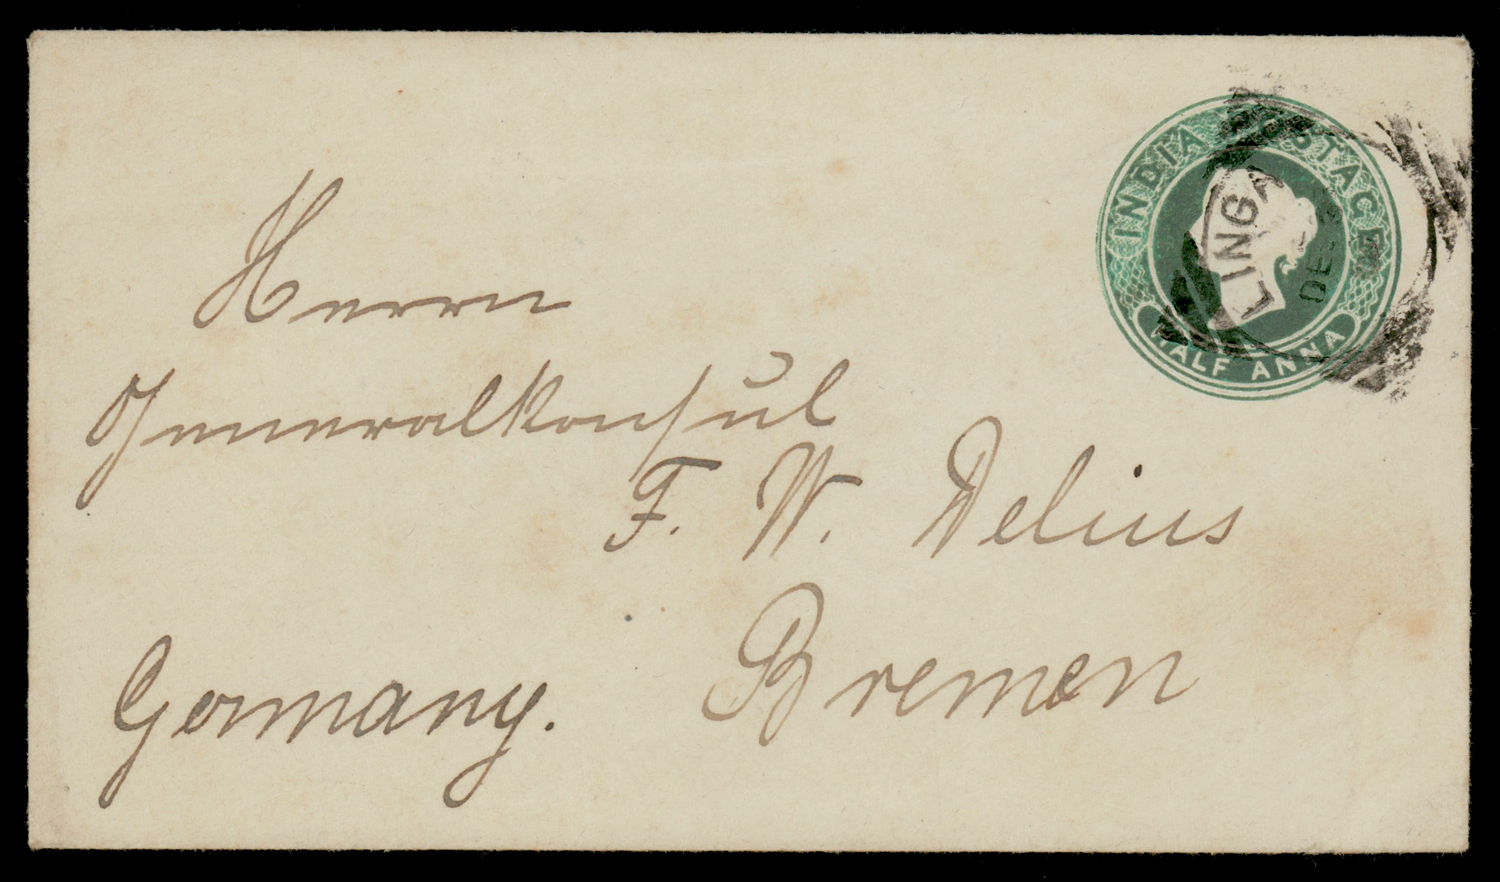 INDIA POSTAGE
HALF ANNA
LINGA
DE
Herrn
Generalkonsul
F. W. Delius
Bremen
Germany.